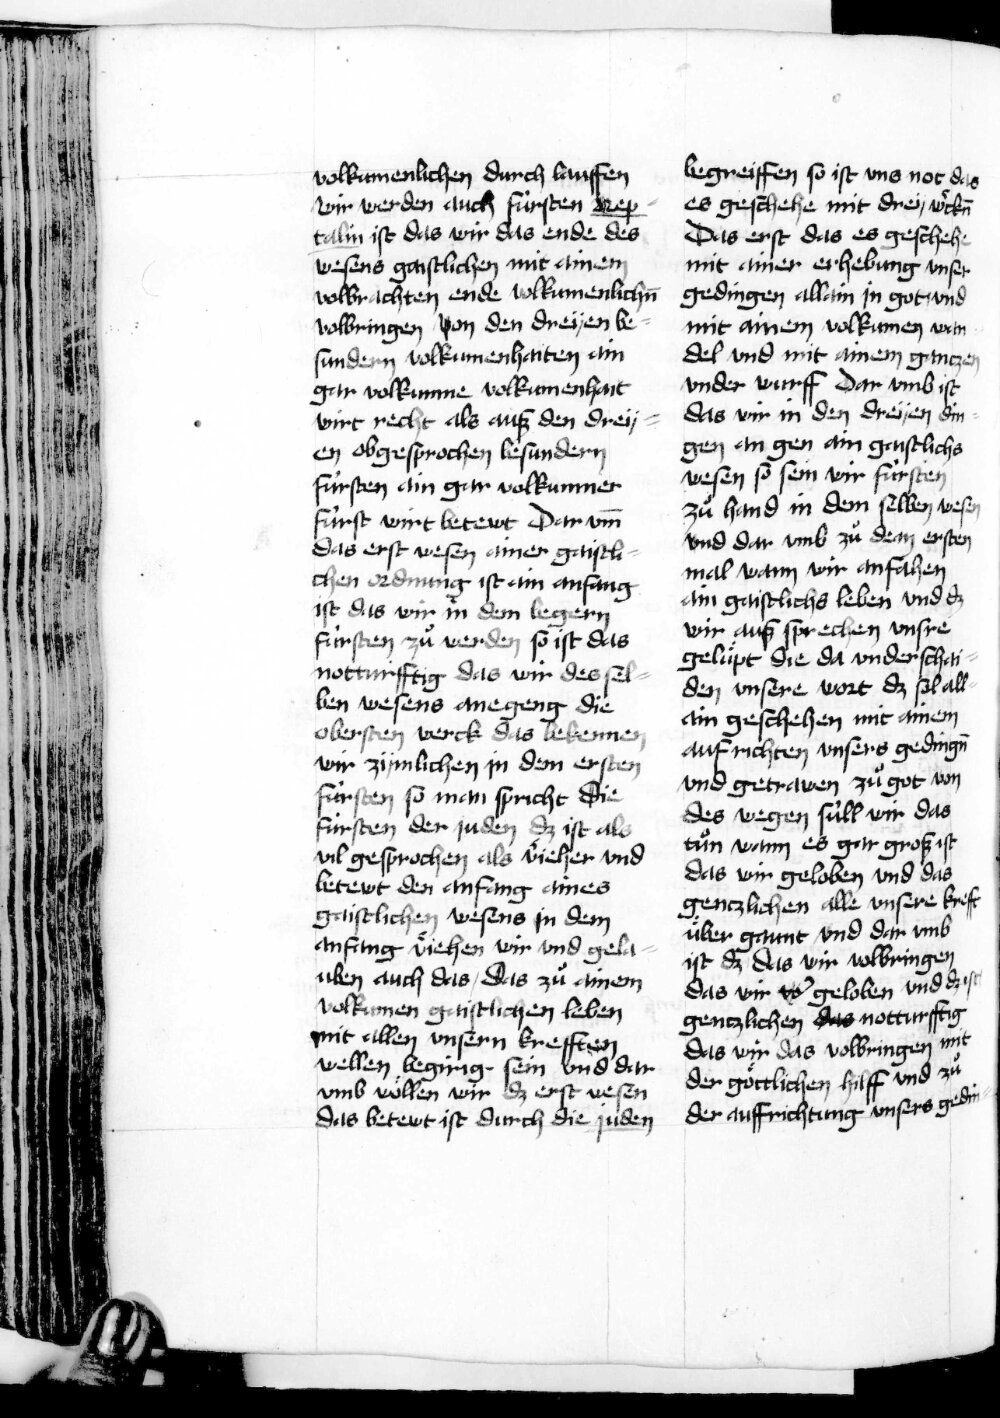 volkumenlichen durch lauffen
wir werden auch fürsten nep-
talin ist das wir das ende des
wesens gaistlichen mit ainem
volbrachten ende volkumenlichn̄
volbringen von den dreÿen be-
sundern volkumenhaiten ain
gar volkumne volkumenhait
wirt recht als auß den dreÿ-
en obgesprochen besundern
fürsten ain gar volkumner
fürst wirt betewt Dar vm̄
das erst wesen ainer gaistli-
chen ordnung ist ain anfang
ist das wir in dem legern
fürsten zů werden so ist das
notturfftig das wir des sel-
ben wesens anegeng die
obersten werck das bekennen
wir zÿmlichen in dem ersten
fürsten so man spricht Die
fürsten der juden dz ist als
vil gesprochen als veieher vnd
betewt den anfang aines
gaistlichen wesens in dem
anfang veiehen wir vnd gela-
uben auch das Das zů ainem
volkumen gaistlichen leben
mit allen vnsern krefften
wellen begirig sein vnd dar
vmb wöllen wir dz erst wesen
das betewt ist durch die juden
begreiffen so ist vns not das
es geschehe mit dreÿ wërckn̄
Das erst das es geschehe
mit ainer erhebung vnser
gedingen allain in got vnd
mit ainem volkumen wan-
del vnd mit ainem ganczen
vnder wurff Dar vmb ist
das wir in den dreÿen din-
gen an gen ain gaistlichs
wesen so sein wir fürsten
zů hand in dem selben wesen
vnd dar vmb zů dem ersten
mal wann wir anfahen
ain gaistlichs leben vnd dz
wir auß sprechen vnsre
gelüpt die da vnderschai-
den vnsere wort dz sol all-
ain geschehen mit ainem
auf richten vnsers gedingn̄
vnd getrawen zů got von
des wegen süll wir das
tůn wann es gar groß ist
das wir geloben vnd das
genczlichen alle vnsere kreft
über gaunt vnd dar vmb
ist dz das wir volbringen
das wir geloben vnd dz ist
genczlichen das notturfftig
das wir das volbringen mit
der göttlichen hilff vnd zů
der auffrichtung vnsers gedin-